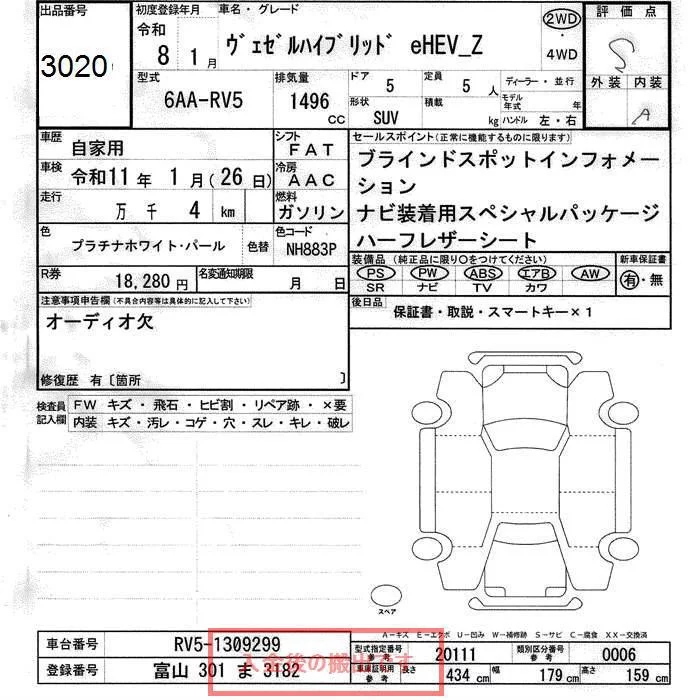 出品番号 3020
初度登録年月 令和 8 1月
車名・グレード
ヴェゼルハイブリッド eHEV_Z
2WD・4WD
評価点 S
外装 内装 A
型式 6AA-RV5
排気量 1496 CC
ドア 5
定員 5 人
形状 SUV
積載 kg
ディーラー・並行
モデル年式 年
ハンドル 左・右
車歴 自家用
シフト FAT
車検 令和11年 1月(26日)
冷房 AAC
走行 万 千 4 km
燃料 ガソリン
色 プラチナホワイト・パール 色替
色コード NH883P
R券 18,280円
名変通知期限 月 日
セールスポイント(正常に機能するものに限ります)
ブラインドスポットインフォメー
ション
ナビ装着用スペシャルパッケージ
ハーフレザーシート
装備品(純正品に限り○をつけてください)
PS PW ABS エアB AW
SR ナビ TV カワ
新車保証書
有・無
後日品 保証書・取説・スマートキー×1
注意事項申告欄(不具合内容等は具体的に記入して下さい)
オーディオ欠
修復歴 有〔箇所 〕
検査員記入欄
FW キズ・飛石・ヒビ割・リペア跡・×要
内装 キズ・汚レ・コゲ・穴・スレ・キレ・破レ
スペア
A-キズ E-エクボ U-凹み W-補修跡 S-サビ C-腐食 XX-交換済
車台番号 RV5-1309299
登録番号 富山 301 ま 3182
型式指定番号参考 20111
類別区分番号参考 0006
車庫証明用参考 長さ 434 cm 幅 179 cm 高さ 159 cm
入金後の搬出です